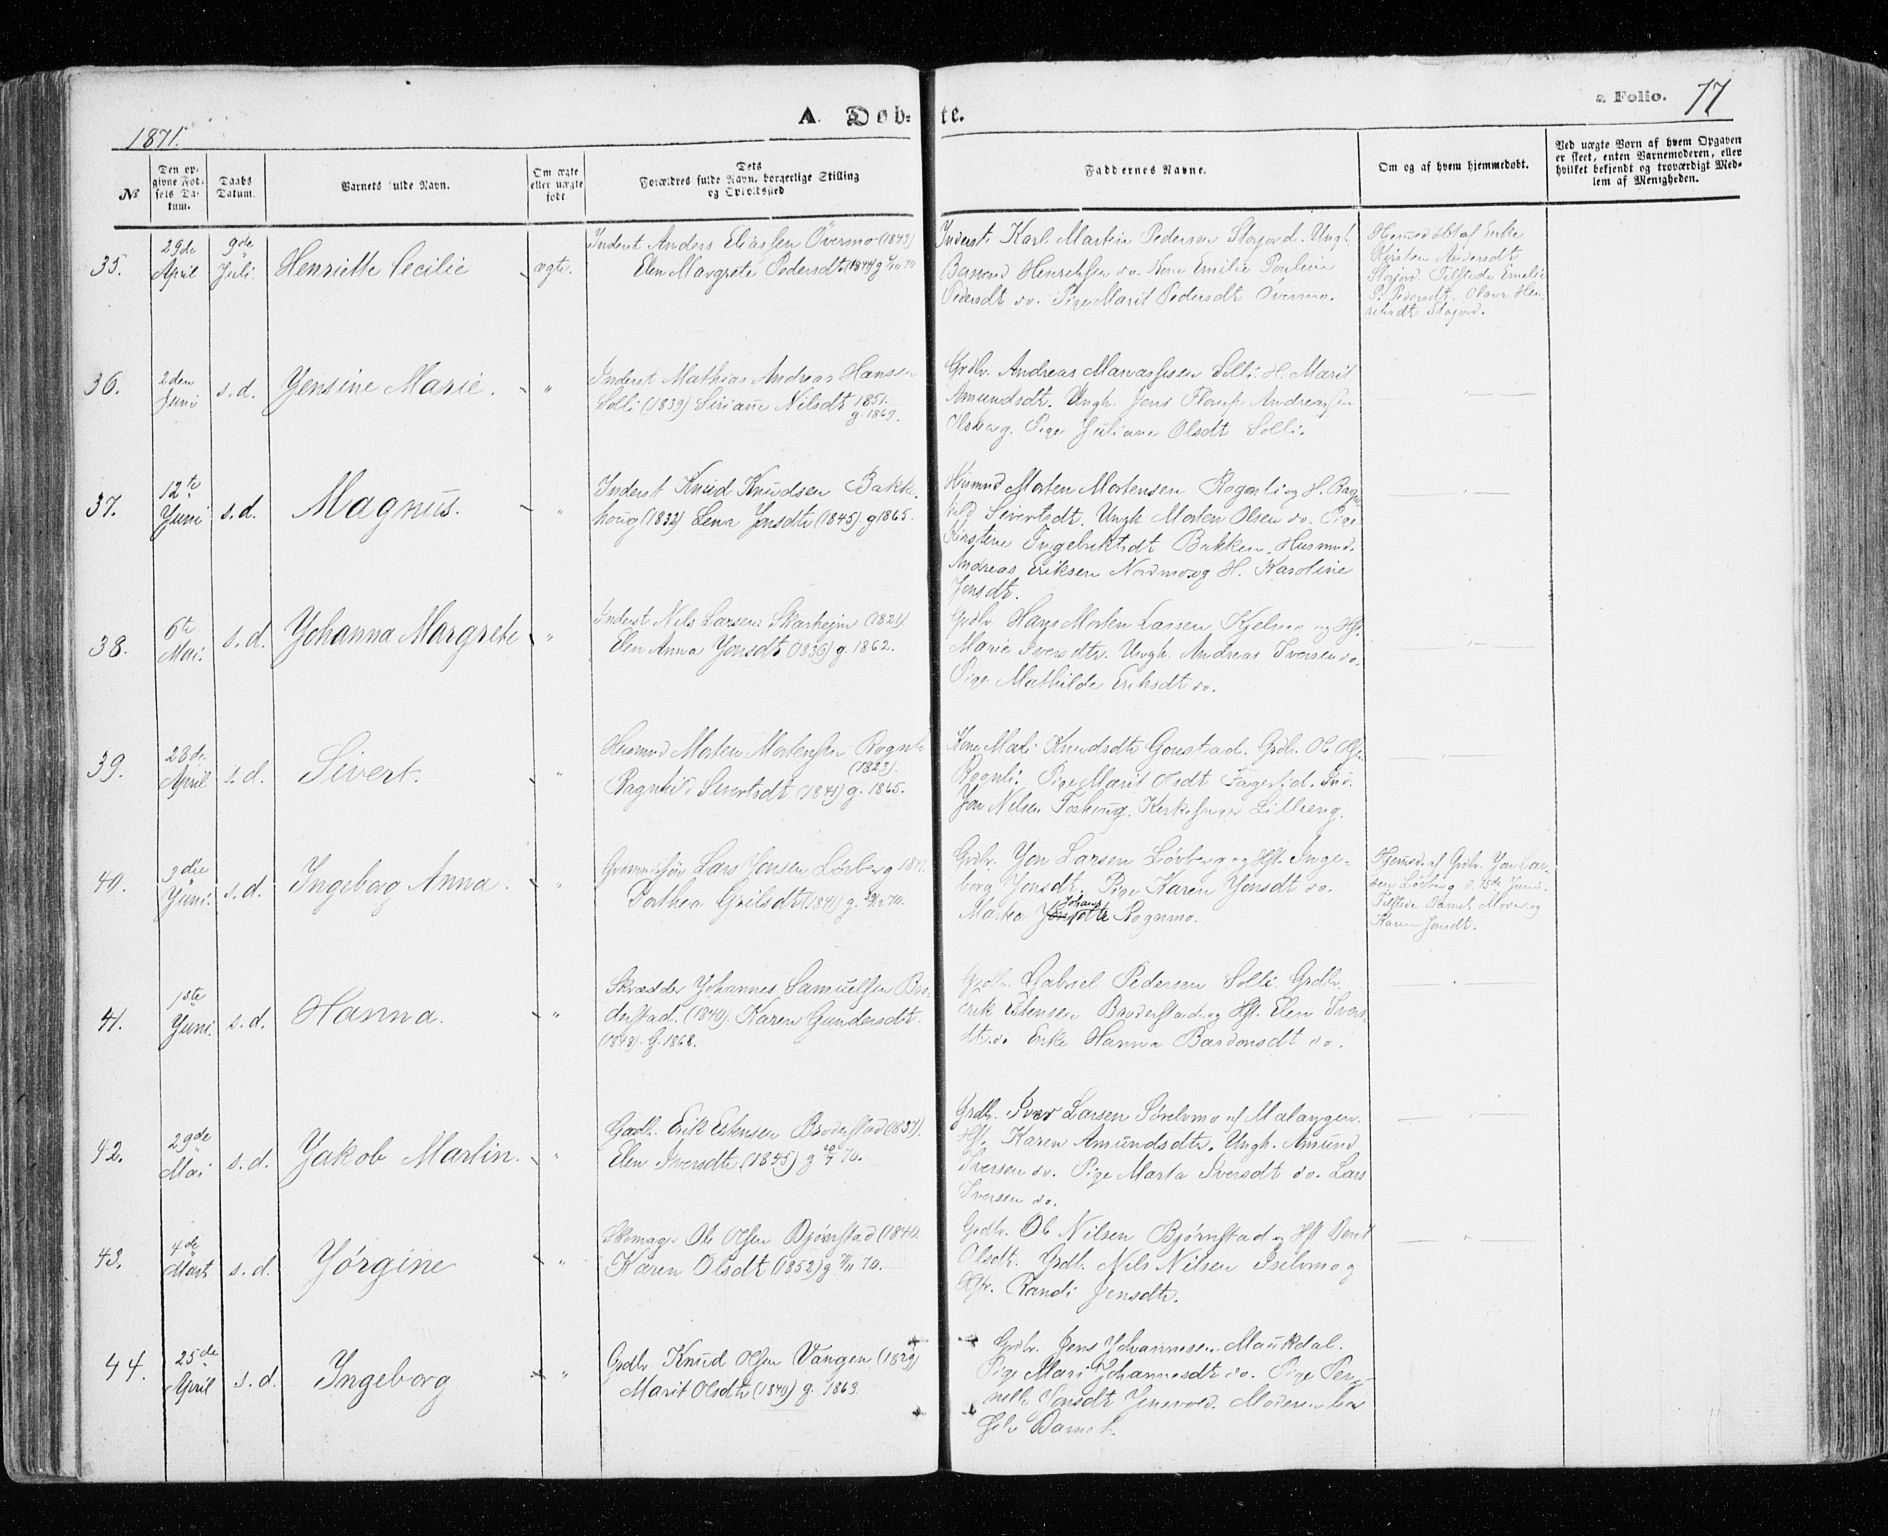 1871.
A. Døb-te.
a Folio. 77
No
Den opgivne Fødsels Datum.
Daabs Datum.
Barnets fulde Navn.
Om ægte eller uægte født
Dets Forældres fulde Navn, borgerlige Stilling og Opholdsted
Faddernes Navne.
Om og af hvem hjemmedøbt.
Ved uægte Børn af hvem Opgaven er skeet, enten Barnemoderen, eller hvilket bekjendt og troværdigt Medlem af Menigheden.
35. 29de April 9de Juli Henriette Cecilie ægte.
Inderst Anders Eliassen Övermo (1843)
Elen Margrete Pedersdt (1844) g 70
Inderst Karl Martin Pedersen Storjord. Ungk.
Henriksen do. Kone Emilie Paulina
Pedersdt do. Pige Marit Pedersdt Övermo.
Hjemedöbt af Enke
Kirsten Andersdt
Storjord. Tilstede Emelie
P. Pedersdt. Hen-
riksdt Storjord.
36. 2den Juni s.d. Jensine Marie. "
Inderst Mathias Andreas Hansen
Solli (1839) Siriane Nilsdt 1851.
g. 1869.
Grdbr. Andreas Manassesen Solli. H. Marit
Amundsdt. Ungk. Jens Andreassen
Olsborg. Pige Juliane Olsdt Solli.
37. 12te Juni s.d. Magnus. "
Inderst Knud Knudsen Bakke-
houg (1832) Lena Jonsdt (1845) g 1865.
Husmd Morten Mortensen Rognli og H. Ragn-
hild Sivertsdt. Ungk. Morten Olsen do. Pige
Kirstine Ingebriktsdt Bakken. Husmd.
Andreas Eriksen Nordmo og H. Karoline
Jensdt.
38. 6te Mai. s.d. Johanna Margrete "
Inderst Nils Larsen Skarheim (1821)
Elen Anna Jonsdt (1836) g. 1862.
Grdbr. Hans Morten Larsen Kjelmo og Hst.
Marie Iversdtr. Ungk. Andreas Iversen do.
Pige Mathilde Eriksdt do.
39. 28de April s.d. Sivert. "
Husmd Morten Mortensen Rognli
(1822).
Ragnhild Sivertsdt (1841) g. 1865.
Kone Mali Knudsdtr Goustad. Grdbr. Ol. Ols.
Rognli. Pige Marit Olsdt Fagerlid. Ind.
Jon Nilsen Foshoug. Kirkesanger Lilleeng.
40. 3die Juni. s.d. Ingeborg Anna. "
Lars Jonsen Lövberg 184
Dorthea Grilsdt (1841) g. 70.
Grdbr. Jon Larsen Lövberg og Hst. Inge-
borg Jonsdt. Pige Karen Jonsdt do.
Johans
Marta Rognmo.
Hjemed. af Grdbr. Jon Lar-
sen Lövberg d. 15de Juni.
Tilstede Barnets Moder og
Karen Jonsdt.
41. 1ste Juni. s.d. Hanna. "
Skrædder Johannes Samuelsen Bro-
derstad. (1840). Karen Gundersdt.
(1848). G. 1868.
Grdbr. Gabriel Pedersen Solli. Grdbr.
Erik Estensen Broderstad og Hst. Elen Ivers-
dt. do Enke Hanna Bardonsdt do.
42. 29de Mai s.d. Jakob Martin. "
Grdbr. Erik Estensen Broderstad (1837).
Elen Iversdtr (1845) g 70.
Grdbr. Iver Larsen Sörelvmo af Malangen.
Hst. Karen Amundsdtr. Ungk. Amund
Iversen do. Pige Marta Iversdt do. Lars
Iversen do.
43. 4de Mart s.d. Jörgine "
Skomager Ole Olsen Björnstad (1840.
Karen Olsdt (1852) g 70.
Grdbr. Ol. Nilsen Bjørnstad og Hst Berit
Olsdt. Grdbr. Nils Nilsen Iselvmo og
Randi Jensdtr.
44. 25de April s.d. Ingeborg "
Grdbr. Knud Olsen Vangen (1829)
Marit Olsdtr (1840) g. 1863
Grdbr. Jens Johannesen Maukdal.
Pige Mari Johannesdt do. Pige Per-
nelle Jonsdt Jensvold. Moderen bar
selv Barnet.